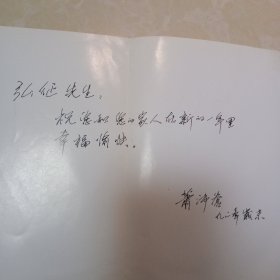 弘征先生:
祝您和您的家人在新的一年里
幸福愉快。
萧泽
九二年岁末